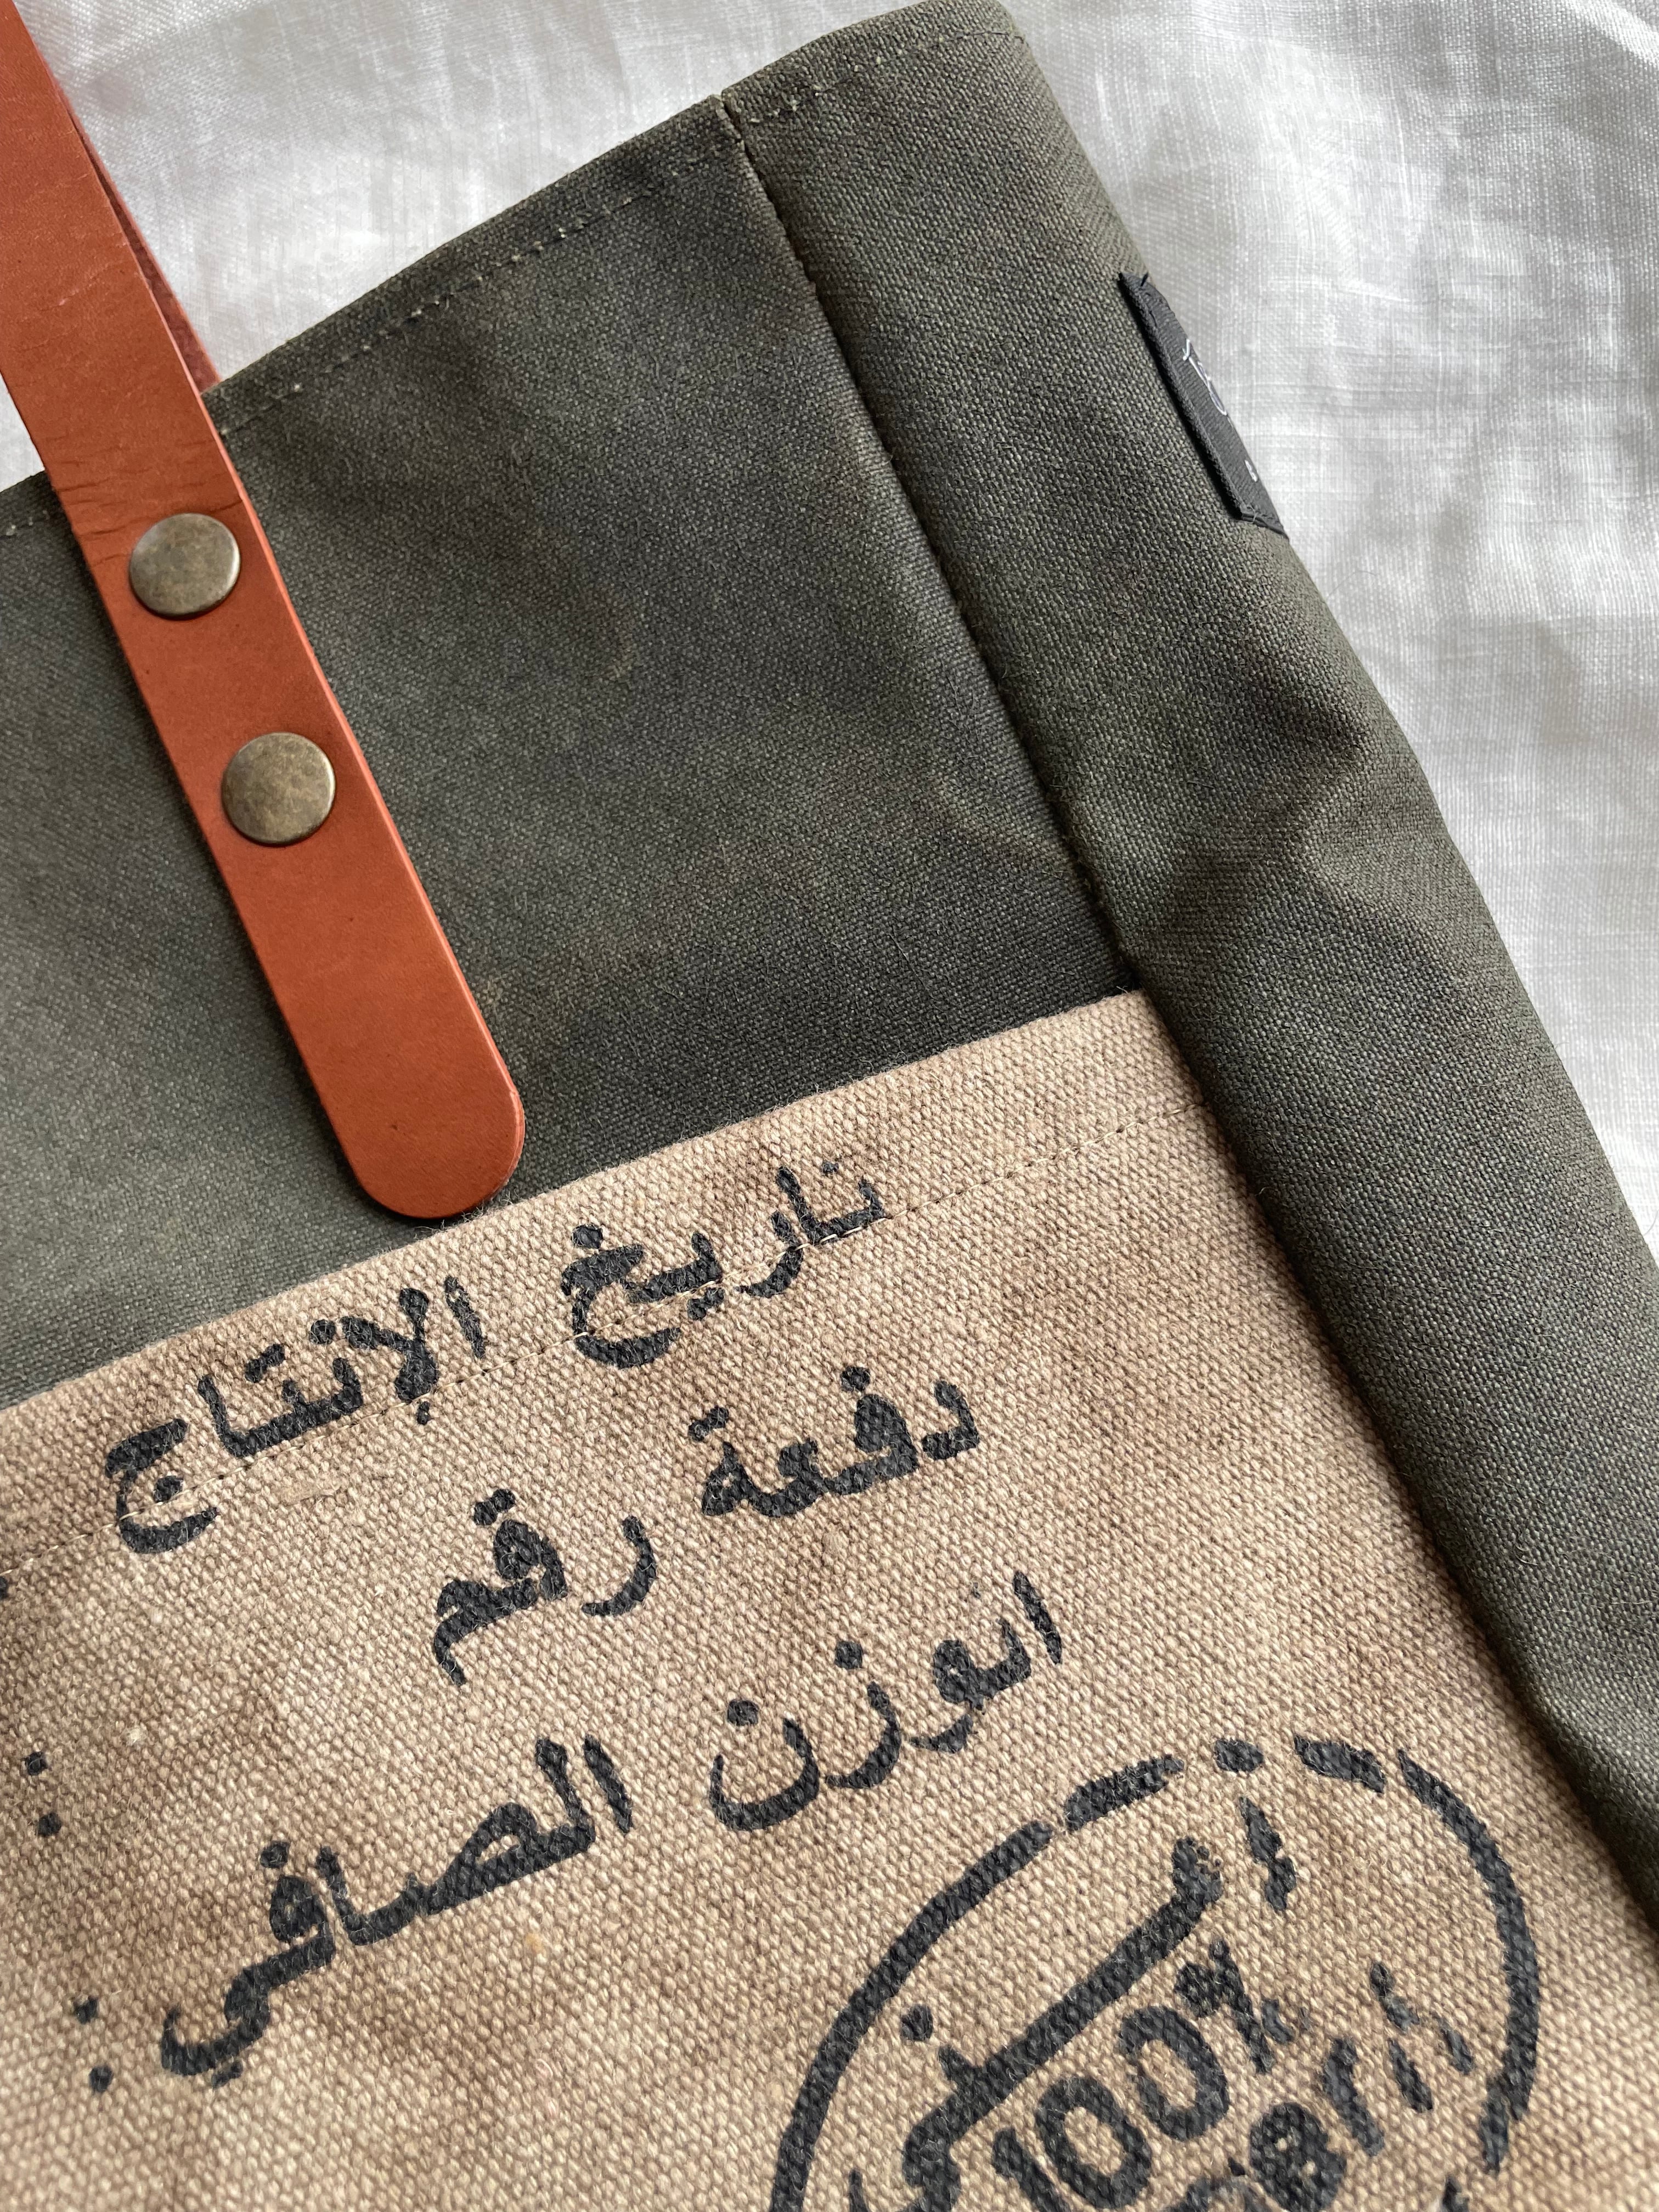 تاريخ الإنتاج :
دفعة رقم :
الوزن الصافي :
100%